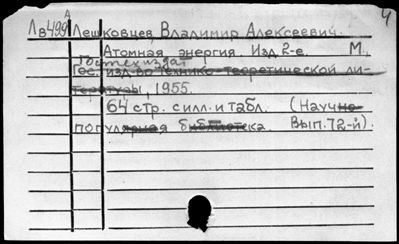 Лв499 А Лешковцев, Владимир Алексеевич. 4
Атомная энергия. Изд. 2-е. М.,
Гостехиздат
Гос. изд-во технико-теоретической ли-
тературы, 1955.
64 стр. с илл. и табл. (Научно-
популярная библиотека. Вып. 72-й).